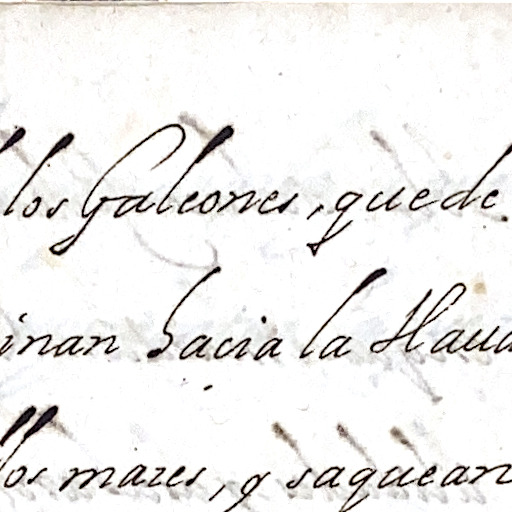 los Galeones, que de
inan hacia la Hava
llos mares, y saquean